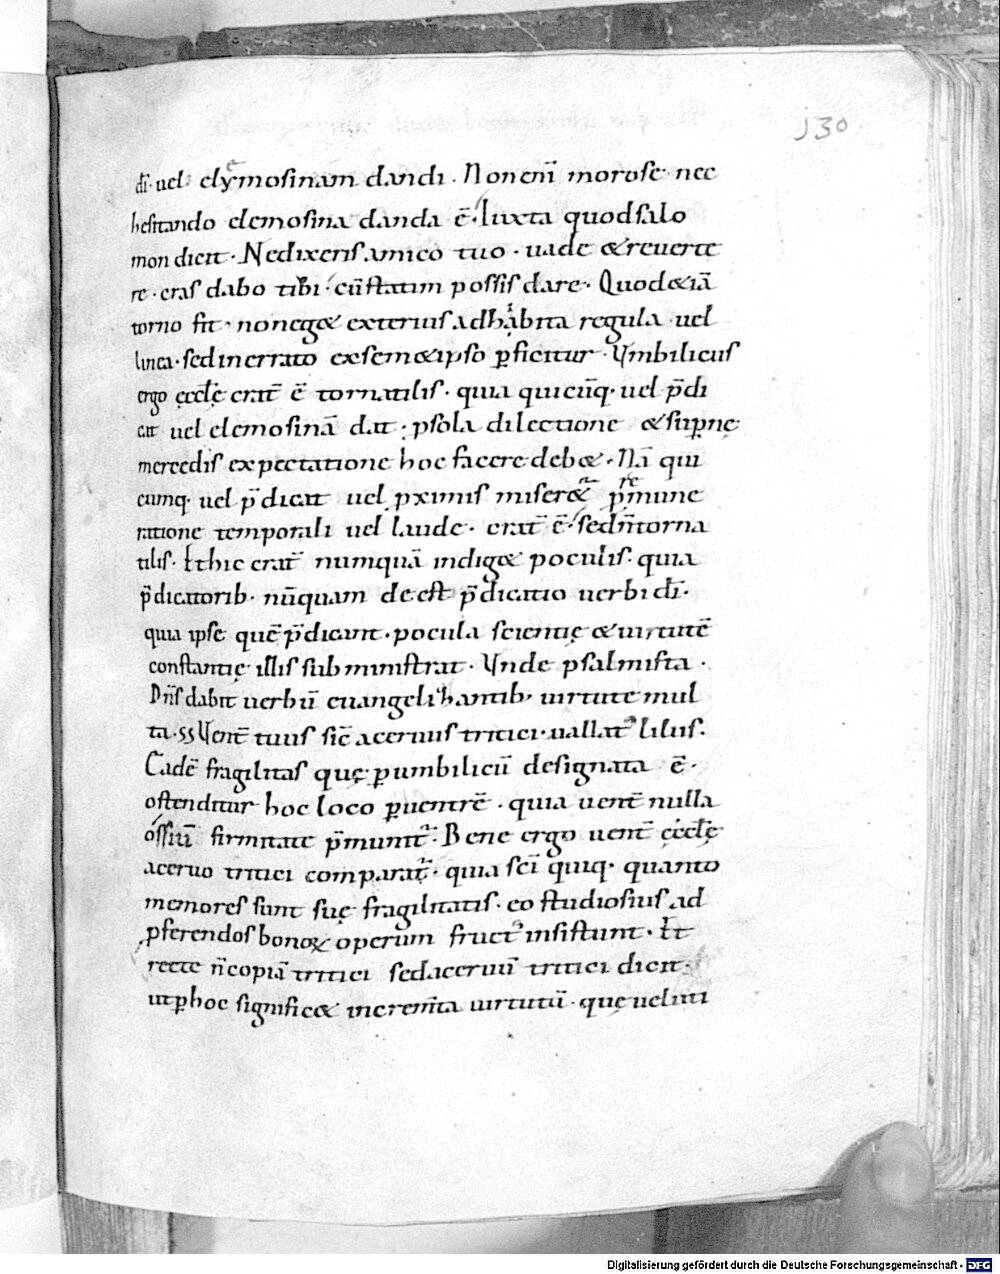 130
di· uel elyemosinam dandi · Non eni̅ morose nec
hesitando elemosina danda e̅· Iuxta quod salo
mon dicit · Ne dixeris amico tuo · uade & reuerte
re · cras dabo tibi · cu̅ statim possis dare · Quod & ia̅
torno fit · non eg& exterius adhibita regula · uel
linea · sed in errato ex sem& ipso p̲ficitur · Vmbilicus
ergo ęccl̅ę erat̅ e̅ tornatilis · quia quicu̅q· uel p̅di
cat uel elemosina̅ dat · p sola dilectione & sup̲nę
mercedis expectatione hoc facere deb& · Na̅ qui
cumq· uel p̅dicat uel p̲ximis miser&ur p̲ remune
ratione temporali uel laude · crat̅ e̅ · sed n̅ torna
tilis · Et hic crat̅ numqua̅ indig& poculis · quia
p̅dicatorib· nu̅quam deest p̅dicatio uerbi di̅ ·
quia ipse que̅ p̅dicant · pocula scientię & uirtute̅
constantię illis sub ministrat · Vnde psalmista ·
Dn̅s dabit uerbu̅ euangelizantib· uirtute mul
ta · ss Vent̅ tuus sic̅ aceruus tritici · uallatꝰ liliis ·
Eade̅ fragilitas quę p̲ umbilicu̅ designata e̅ ·
ostenditur hoc loco p̲ uentre̅ · quia uent̅ nulla
ossiu̅ firmitate p̅munit̅ · Bene ergo uent̅ ęccl̅ę
aceruo tritici comparat̅ · quia sc̅i quiq· quanto
memores sunt suę fragilitatis · eo studiosius ad
pferendos bonoꝝ operum fructꝰ insistunt · Et
recte n̅ copia̅ tritici sed aceruu̅ tritici dicit ·
ut p̲ hoc signific& increm̅ta uirtutu̅ · quę uelut
Digitalisierung gefördert durch die Deutsche Forschungsgemeinschaft - DFG